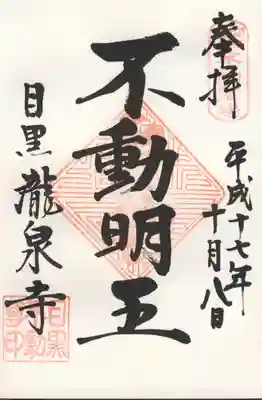 奉拝
平成十七年
十月八日
不動明王
目黒瀧泉寺